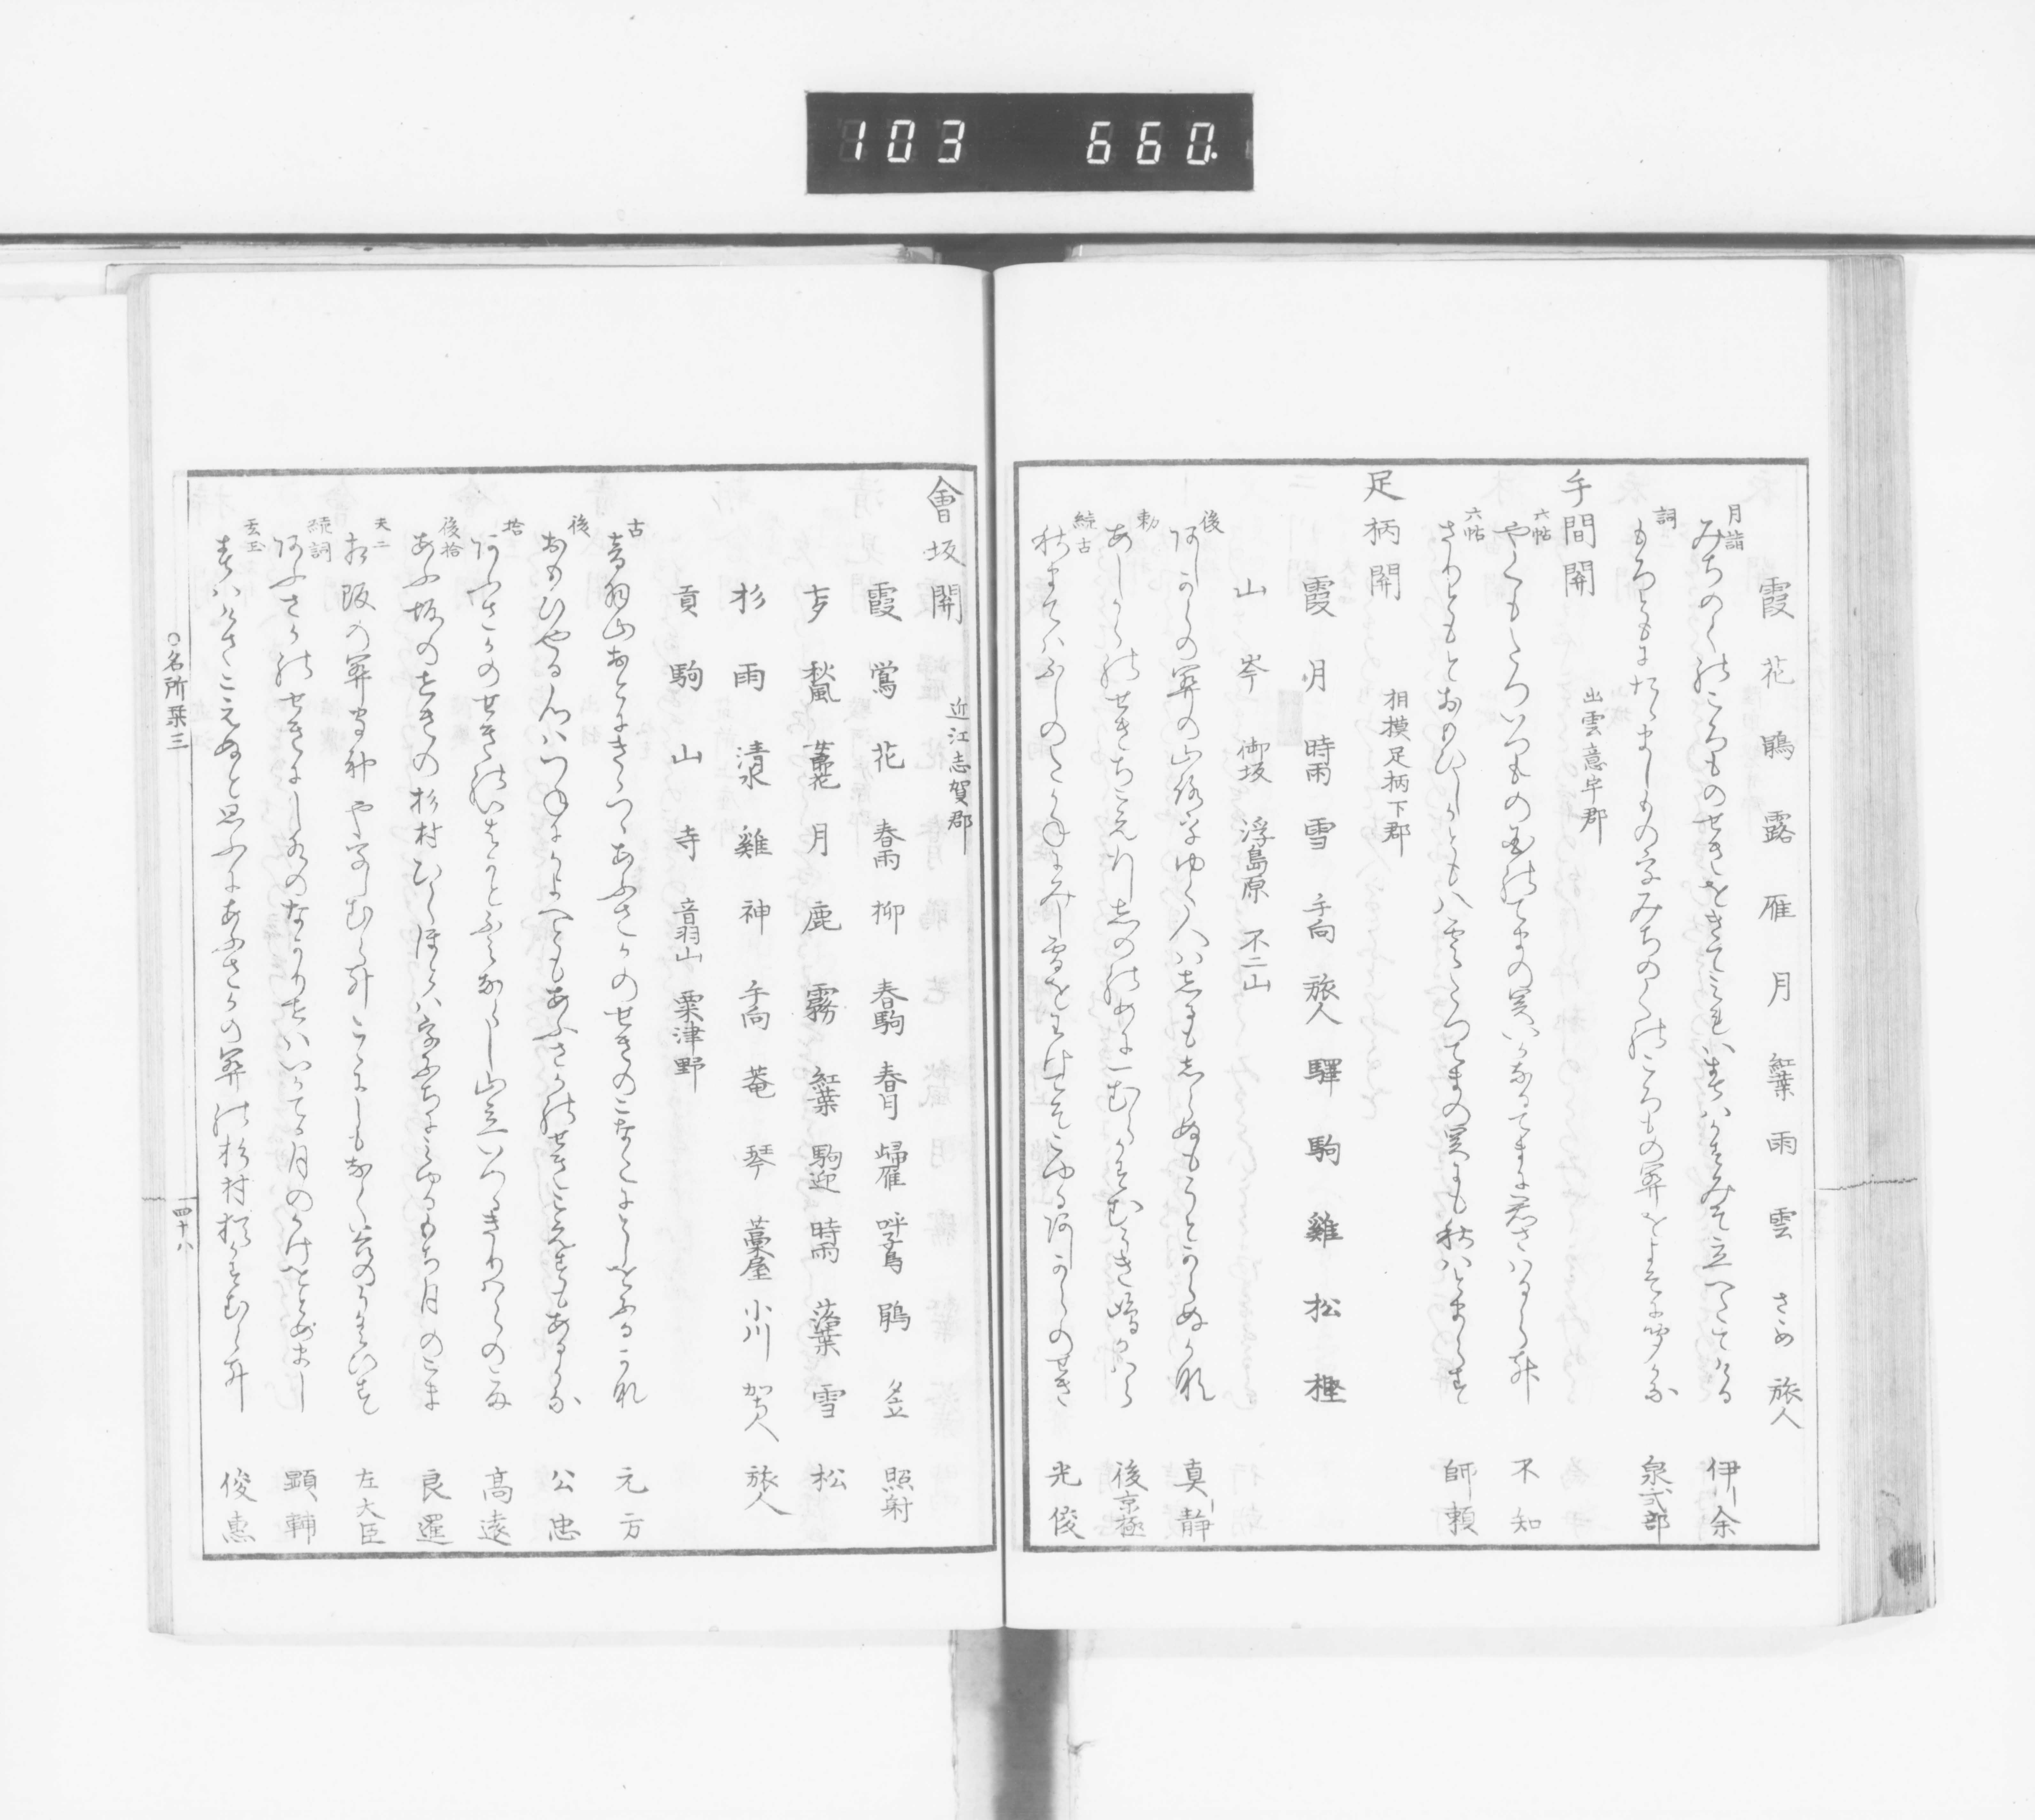 103 660.
霞 花 鵑 露 雁 月 紅葉 雨 雲 さゆ 旅人
月詣 みちのくのころものせきをきてみれはかすみそ立へたてける 伊余
詞 もろともにたゝましものをみちのくのころもの関をよそにきくかな 泉式部
手間關 出雲意宇郡
六帖 やくもたついつもの国のてまの関いかなるてまに君さはるらん 不知
六帖 さりともとおもひしかとも八雲たつてまの関にも秋はとまらす 師頼
足柄關 相摸足柄下郡
霞 月 時雨 雪 手向 旅人 驛 駒 雞 松 樫
山 岑 御坂 浮島原 不二山
後 あしからの関の山路をゆく人はしるもしらぬもうとからぬかな 真静
勅 あしからのせきちこえ行しのゝめに一むらかすむうき嶋かはら 後京極
続古 秋まてはふしのたかねにみし雪をわけてそこゆるあしからのせき 光俊
會坂關 近江志賀郡
霞 鶯 花 春雨 柳 春駒 春月 歸雁 呼子鳥 鵑 照射
秋風 薄花 月 鹿 霧 紅葉 駒迎 時雨 落葉 雪 松
杉 雨 清水 雞 神 手向 菴 琴 藁屋 小川 旅人
貢 駒 山 寺 音羽山 粟津野
古 音羽山おとにきゝつゝあふさかのせきのこなたにとしをふるかな 元方
後 おもひやる心はつねにかよへともあふさかのせきこえすもあるかな 公忠
拾 あふさかのせきのいはかとふみならし山立いつるきりはらのこま 高遠
後拾 あふ坂のせきの杉村ひくほとはをふちにみゆるもち月のこま 良暹
夫二 左大臣
続詞 あふさかのせきにし水のなかりせはいかてか月のかけをとめまし 顕輔
玄玉 あふさかの関の杉村 俊惠
○名所栞三
四十八